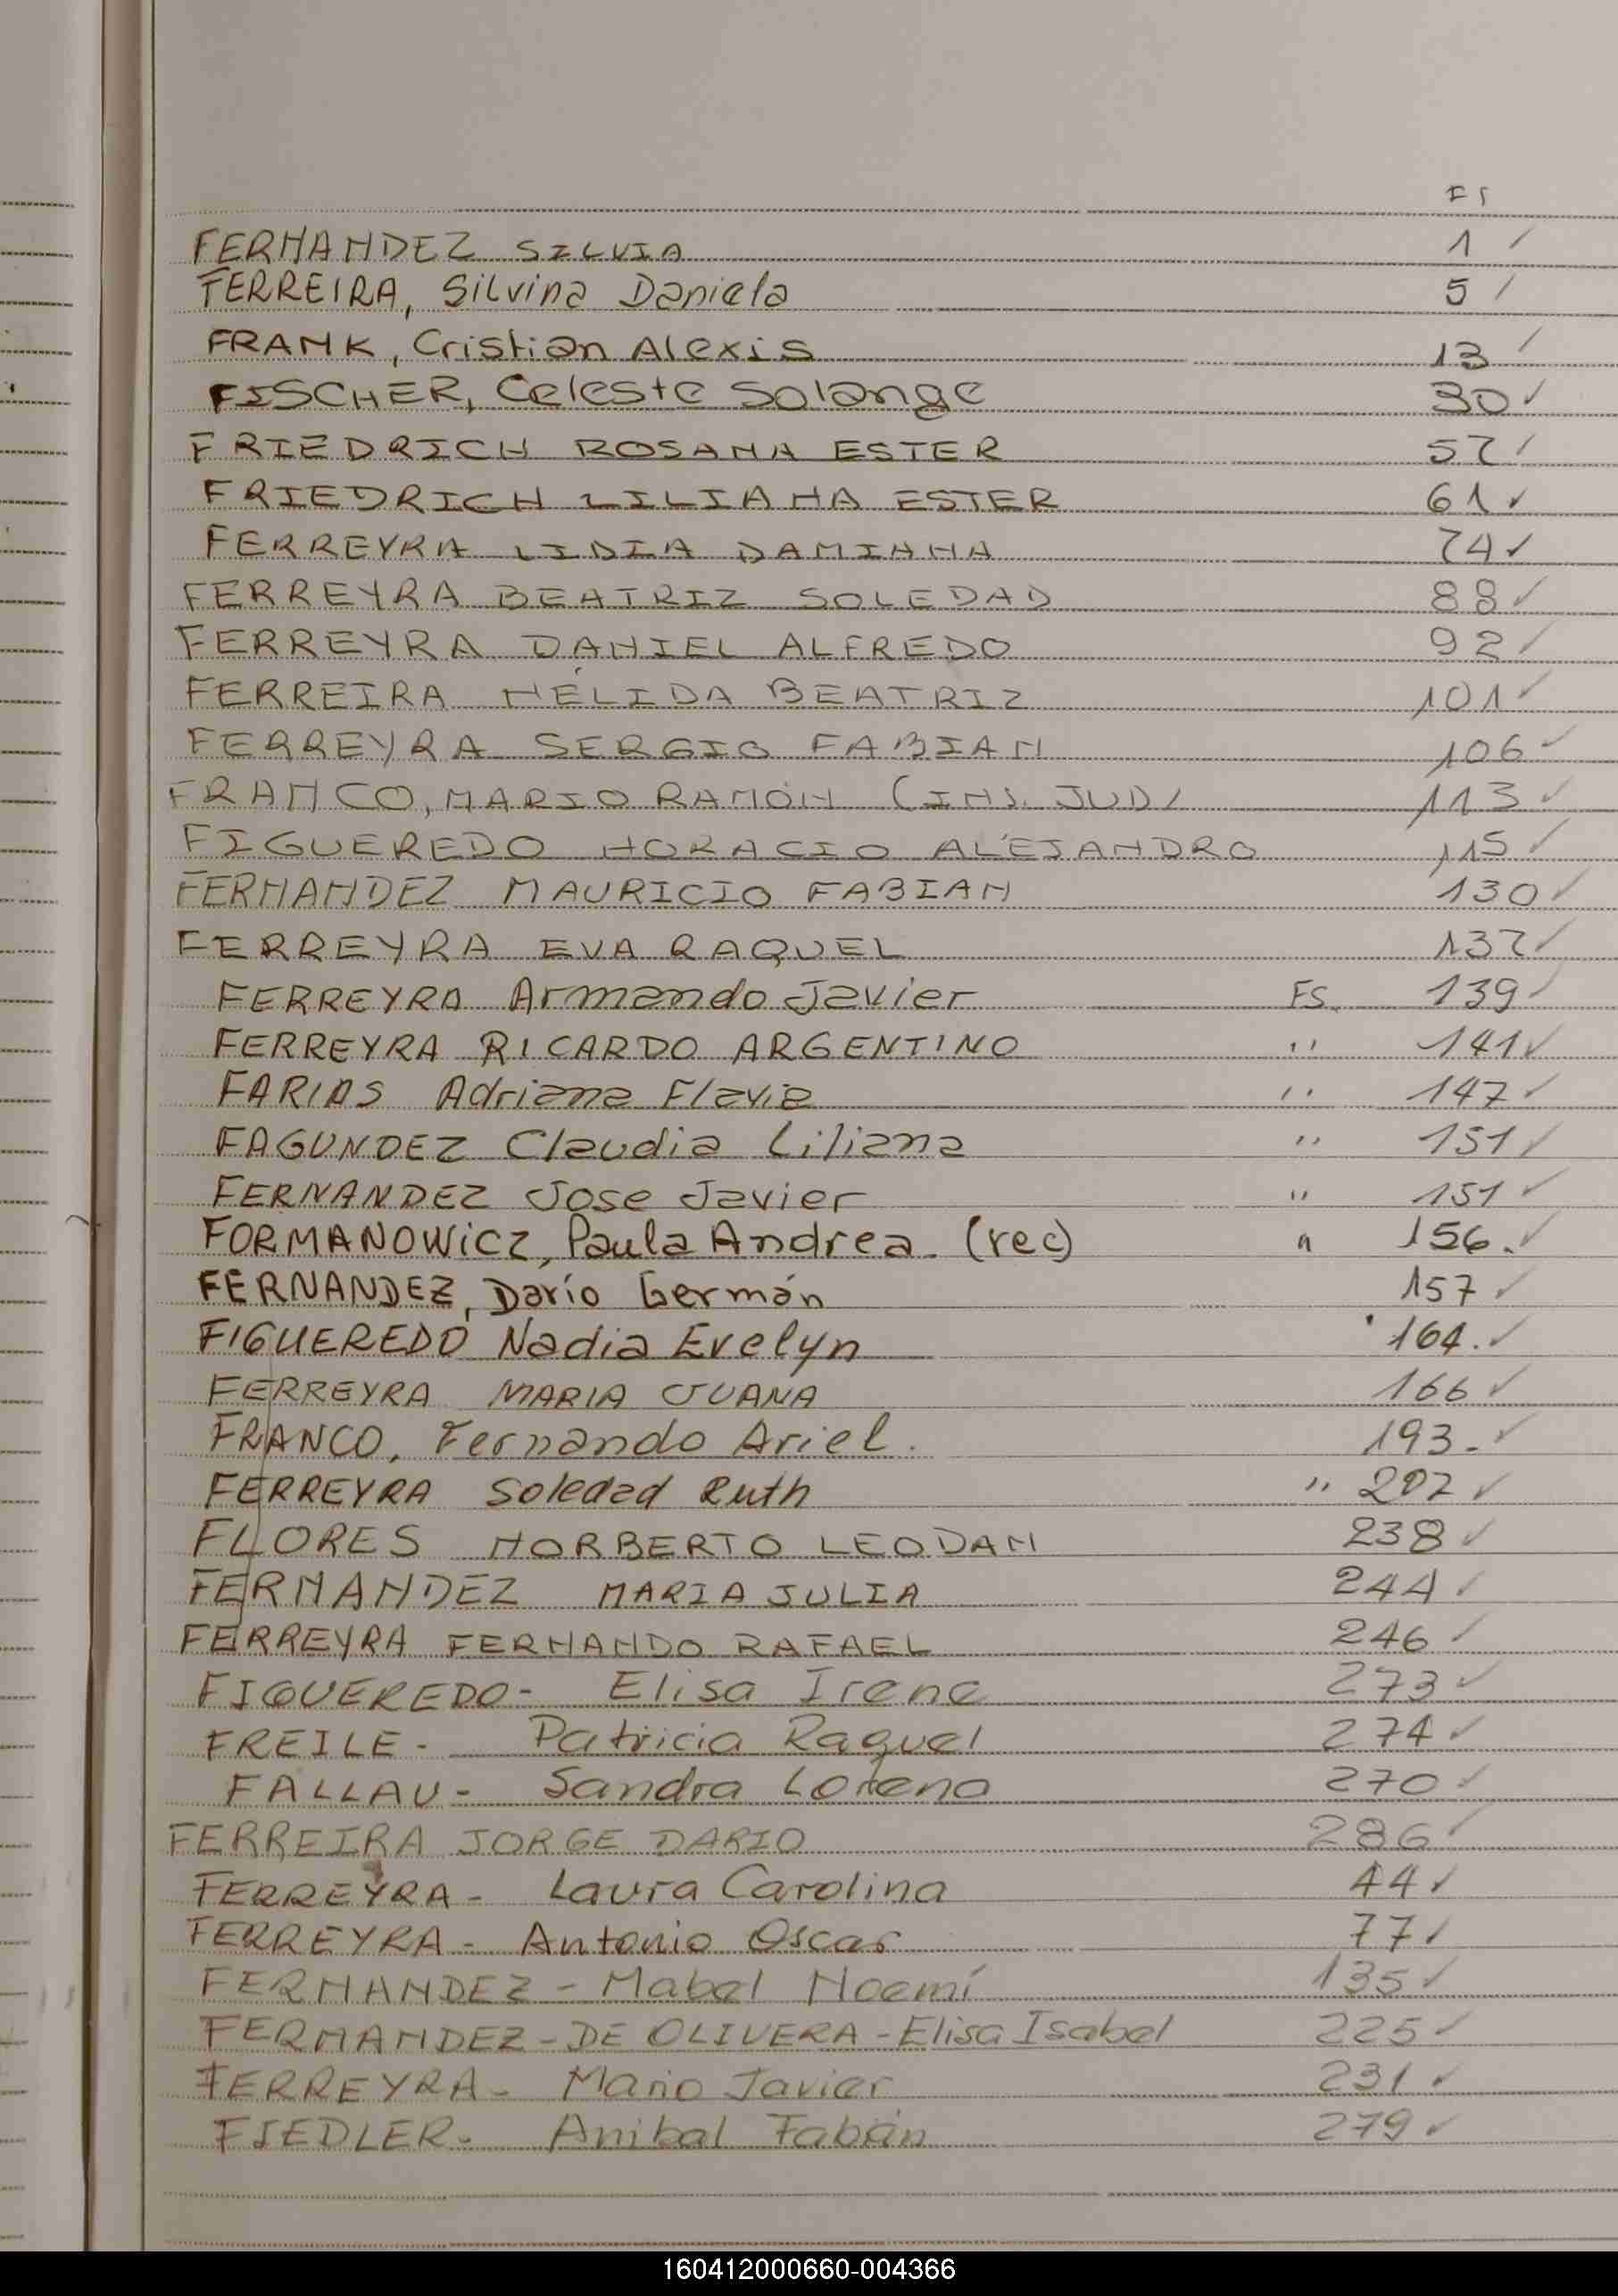 FS
FERNANDEZ SILVIA 1 ✓
FERREIRA, Silvina Daniela 5 ✓
FRANK, Cristian Alexis 13 ✓
FISCHER, Celeste Solange 30 ✓
FRIEDRICH ROSANA ESTER 57 ✓
FRIEDRICH LILIANA ESTER 61 ✓
FERREYRA LIDIA DAMIANA 74 ✓
FERREYRA BEATRIZ SOLEDAD 88 ✓
FERREYRA DANIEL ALFREDO 92 ✓
FERREIRA NÉLIDA BEATRIZ 101 ✓
FERREYRA SERGIO FABIAN 106 ✓
FRANCO, MARIO RAMÓN (INS. JUD/ 113 ✓
FIGUEREDO HORACIO ALEJANDRO 115 ✓
FERNANDEZ MAURICIO FABIAN 130 ✓
FERREYRA EVA RAQUEL 137 ✓
FERREYRA Armando Javier FS. 139 ✓
FERREYRA RICARDO ARGENTINO '' 141 ✓
FARIAS Adriana Flavia '' 147 ✓
FAGUNDEZ Claudia Liliana '' 151 ✓
FERNANDEZ Jose Javier '' 151 ✓
FORMANOWICZ, Paula Andrea. (rec) " 156. ✓
FERNANDEZ, Darío Germán 157 ✓
FIGUEREDO Nadia Evelyn 164. ✓
FERREYRA MARIA JUANA 166 ✓
FRANCO, Fernando Ariel. 193.- ✓
FERREYRA Soledad Ruth '' 207 ✓
FLORES NORBERTO LEODAN 238 ✓
FERNANDEZ MARIA JULIA 244 ✓
FERREYRA FERNANDO RAFAEL 246 ✓
FIQUEREDO- Elisa Irene 273 ✓
FREILE - Patricia Raquel 274 ✓
FALLAU - Sandra Lorena 270 ✓
FERREIRA JORGE DARIO 286 ✓
FERREYRA - Laura Carolina 44 ✓
FERREYRA - Antonio Oscar 77 ✓
FERNANDEZ - Mabel Noemí 135 ✓
FERNANDEZ - DE OLIVERA - Elisa Isabel 225 ✓
FERREYRA - Mario Javier 231 ✓
FIEDLER - Anibal Fabán 279 ✓
160412000660-004366